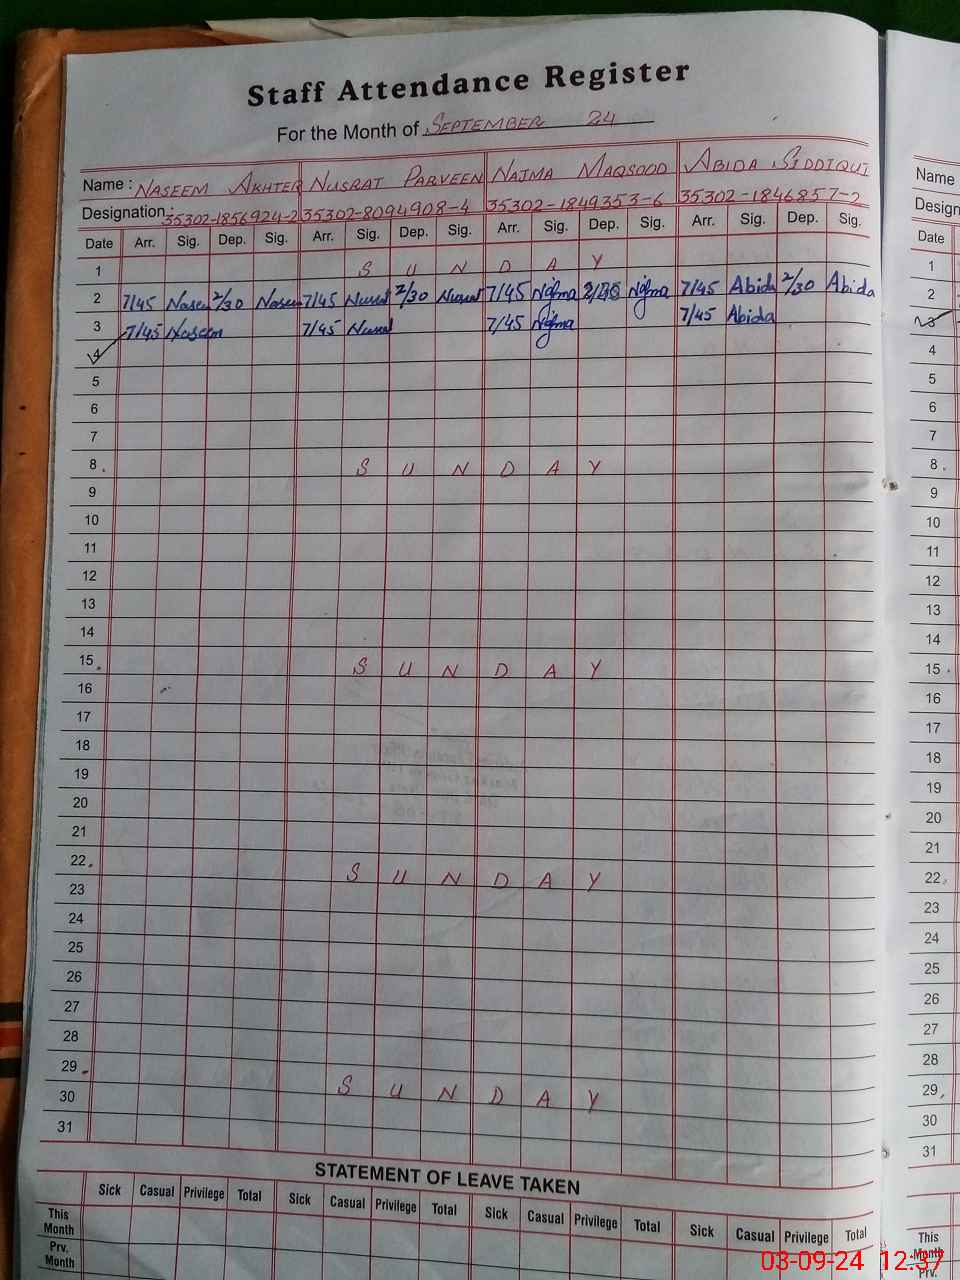 Staff Attendance Register
For the Month of SEPTEMBER 24
Name : NASEEM AKHTER NUSRAT PARVEEN NAJMA MAQSOOD ABIDA SIDDIQUI
Designation : 35302-1856924-2 35302-8094908-4 35302-1849353-6 35302-1846857-2
Date Arr. Sig. Dep. Sig. Arr. Sig. Dep. Sig. Arr. Sig. Dep. Sig. Arr. Sig. Dep. Sig.
1 S U N D A Y
2 7/45 Naseem 2/30 Naseem 7/45 Nusrat 2/30 Nusrat 7/45 Najma Najma 7/45 Abida 2/30 Abida
3 7/45 Naseem 7/45 Nusrat 7/45 Najma 7/45 Abida
4
5
6
7
8 . S U N D A Y
9
10
11
12
13
14
15 . S U N D A Y
16
17
18
19
20
21
22 . S U N D A Y
23
24
25
26
27
28
29 . S U N D A Y
30
31
STATEMENT OF LEAVE TAKEN
Sick Casual Privilege Total Sick Casual Privilege Total Sick Casual Privilege Total Sick Casual Privilege Total
This Month
Prv. Month
Name
Design
Date
1
2
3
4
5
6
7
8 .
9
10
11
12
13
14
15 .
16
17
18
19
20
21
22 .
23
24
25
26
27
28
29 .
30
31
This
Month
Prv.
03-09-24 12:37